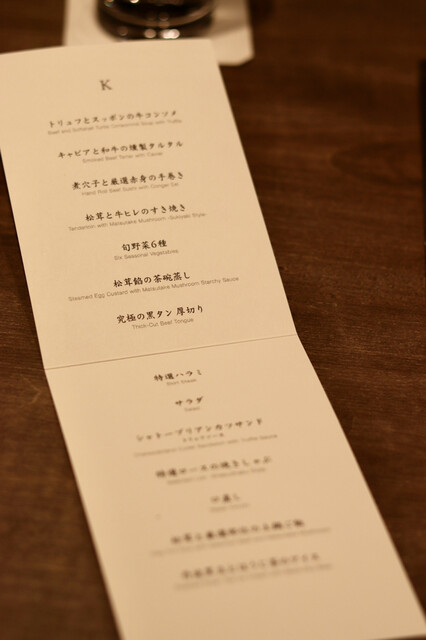 K
トリュフとスッポンの牛コンソメ
Beef and Softshell Turtle Consommé Soup with Truffle
キャビアと和牛の燻製タルタル
Smoked Beef Tartar with Caviar
煮穴子と厳選赤身の手巻き
Hand Roll Beef Sushi with Conger Eel
松茸と牛ヒレのすき焼き
Tenderloin with Matsutake Mushroom Sukiyaki Style
旬野菜6種
Six Seasonal Vegetables
松茸餡の茶碗蒸し
Steamed Egg Custard with Matsutake Mushroom Starchy Sauce
究極の黒タン 厚切り
Thick-Cut Beef Tongue
特選ハラミ
Skirt Steak
サラダ
Salad
シャトーブリアンカツサンド
トリュフソース
Chateaubriand Cutlet Sandwich with Truffle Sauce
特選ロースの焼きしゃぶ
口直し